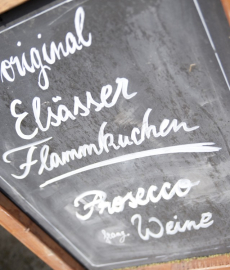 original
Elsässer
Flammkuchen
Prosecco
Weine